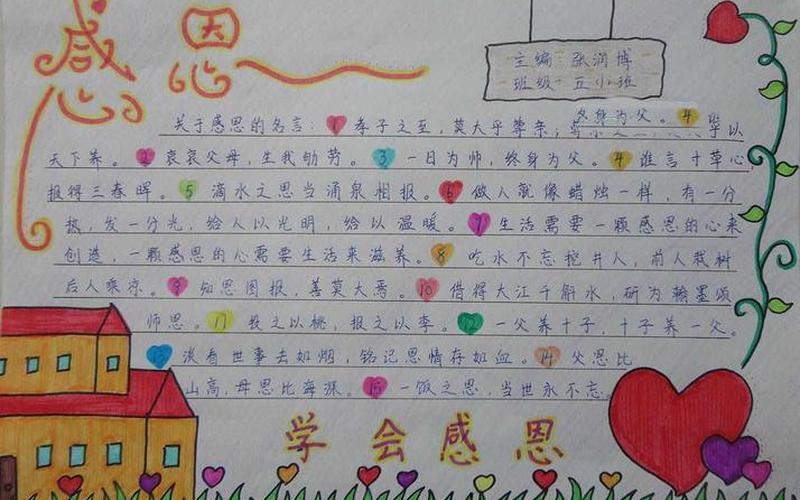 感恩
主编：张润博
班级：五小班
终身为父。4
关于感恩的名言：1 孝子之至，莫大乎尊亲；
毕以
天下养。2 哀哀父母，生我劬劳。3 一日为师，终身为父。4 谁言寸草心，
报得三春晖。5 滴水之恩当涌泉相报。6 做人就像蜡烛一样，有一分
热，发一分光，给人以光明，给以温暖。7 生活需要一颗感恩的心来
创造，一颗感恩的心需要生活来滋养。8 吃水不忘挖井人，前人栽树
后人乘凉。9 知恩图报，善莫大焉。10 借得大江千斛水，研为翰墨颂
师恩。11 投之以桃，报之以李。12 一父养十子，十子养一父。
13 淡看世事去如烟，铭记恩情存如血。14 父恩比
山高，母恩比海深。15 一饭之恩，当世永不忘。
学会感恩